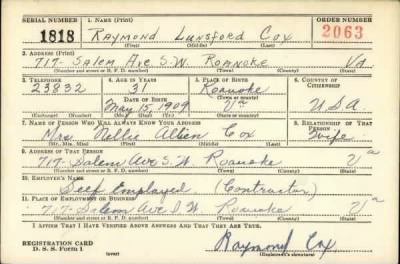 SERIAL NUMBER 1. NAME (Print) ORDER NUMBER
1818 RAYMOND LUNSFORD COX 2063
(First) (Middle) (Last)
2. ADDRESS (Print)
717- SALEM AVE S.W. ROANOKE VA
(Number and street or R. F. D. number) (Town) (County) (State)
3. TELEPHONE 4. AGE IN YEARS 5. PLACE OF BIRTH 6. COUNTRY OF CITIZENSHIP
23832 31 Roanoke
DATE OF BIRTH (Town or county)
May 15, 1909 Va U.S.A.
(Exchange) (Number) (Mo.) (Day) (Yr.) (State or country)
7. NAME OF PERSON WHO WILL ALWAYS KNOW YOUR ADDRESS 8. RELATIONSHIP OF THAT PERSON
Mrs. Nellie Cox Wife
(Mr., Mrs., Miss) (First) (Middle) (Last)
9. ADDRESS OF THAT PERSON
717- Salem Ave S.W. Roanoke Va
(Number and street or R. F. D. number) (Town) (County) (State)
10. EMPLOYER'S NAME
Self Employed (Contractor)
11. PLACE OF EMPLOYMENT OR BUSINESS
717- Salem Ave S.W. Roanoke Va
(Number and street or R. F. D. number) (Town) (County) (State)
I AFFIRM THAT I HAVE VERIFIED ABOVE ANSWERS AND THAT THEY ARE TRUE.
REGISTRATION CARD Raymond Cox
D. S. S. Form 1 (over) (Registrant's signature)